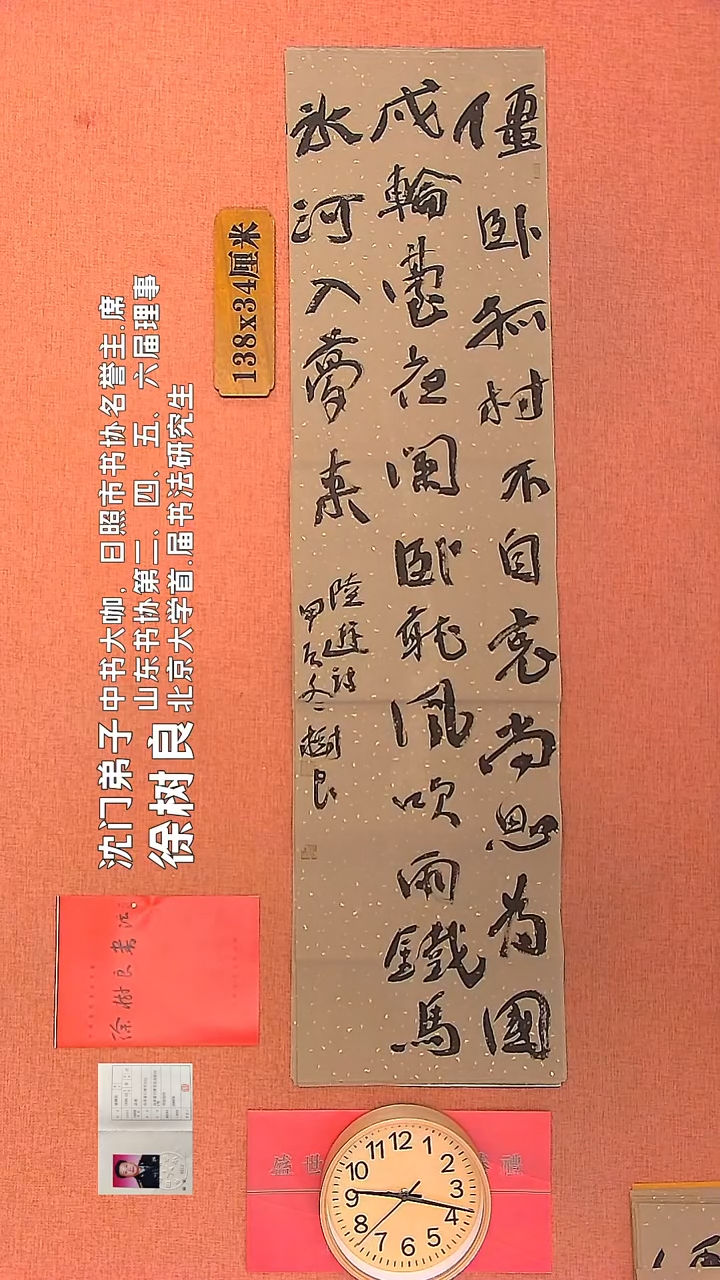 僵卧孤村不自哀尚思为國
戍輪臺夜闌卧聽風吹雨鐵馬
冰河入夢来
陸游詩
甲辰冬樹良
138x34厘米
沈门弟子 中书大咖，日照市书协名誉主.席
山东书协第二、四、五、六届理事
徐树良 北京大学首.届书法研究生
徐樹良
盛世
禮
12
1
2
3
4
5
6
7
8
9
10
11